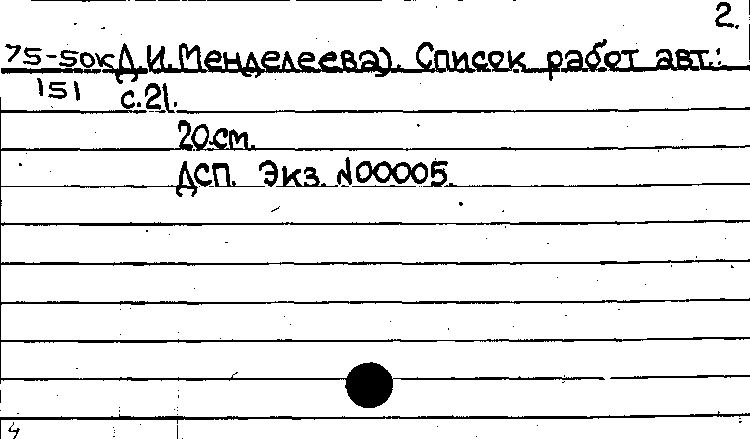 2.
75-50к Д.И.Менделеева). Список работ авт.:
151 с.21.
20см.
ДСП. Экз. №00005.
4